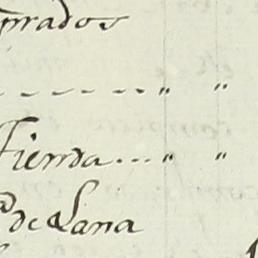 prados
------ " "
Tienda... " "
a de Lana